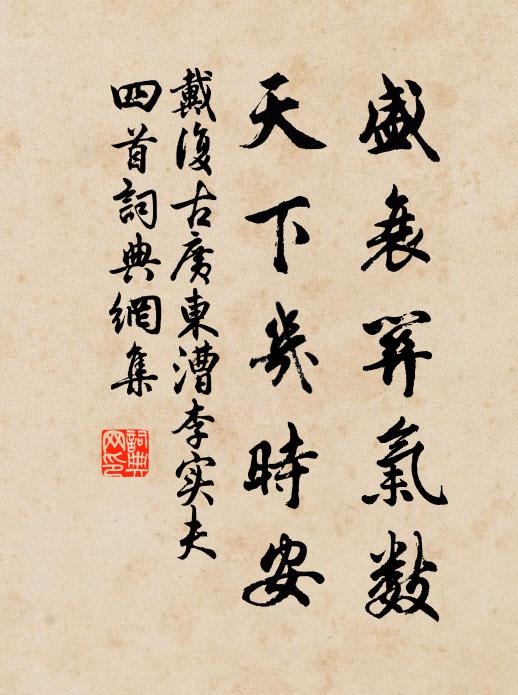 盛衰關氣數
天下幾時安
戴復古廣東漕李实夫
四首詞典網集
詞典
网印